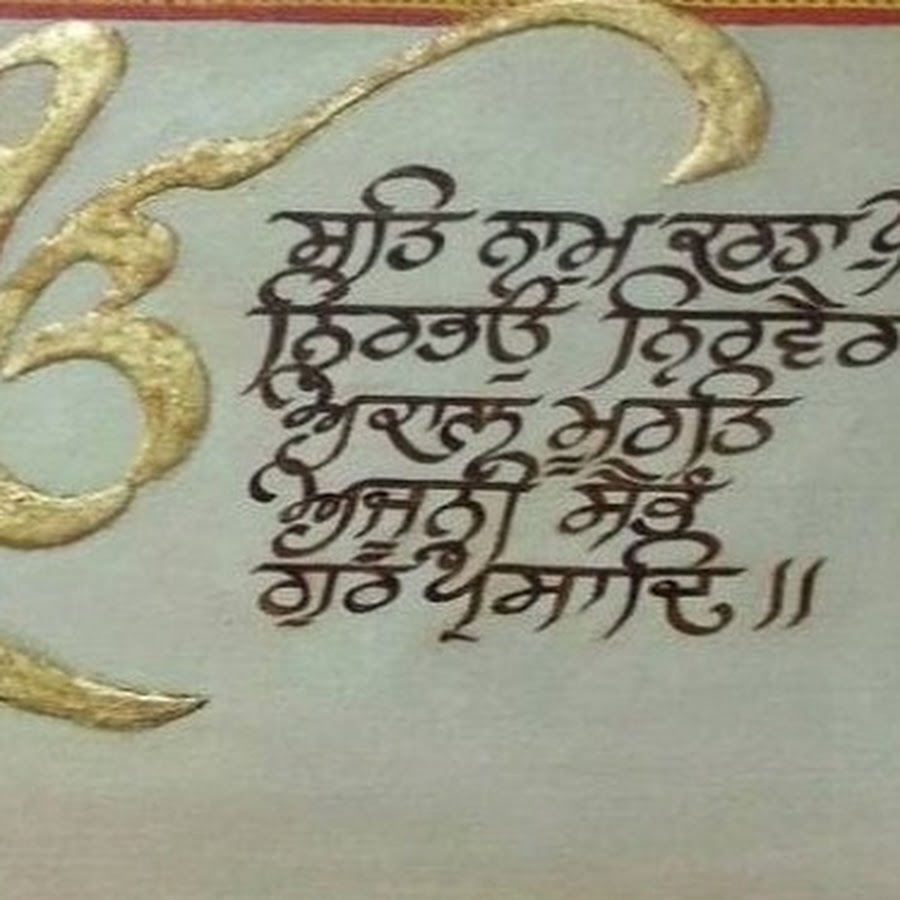 ਸਤਿ ਨਾਮੁ ਕਰਤਾ
ਨਿਰਭਉ ਨਿਰਵੈਰ
ਅਕਾਲ ਮੂਰਤਿ
ਅਜੂਨੀ ਸੈਭੰ
ਗੁਰ ਪ੍ਰਸਾਦਿ ॥